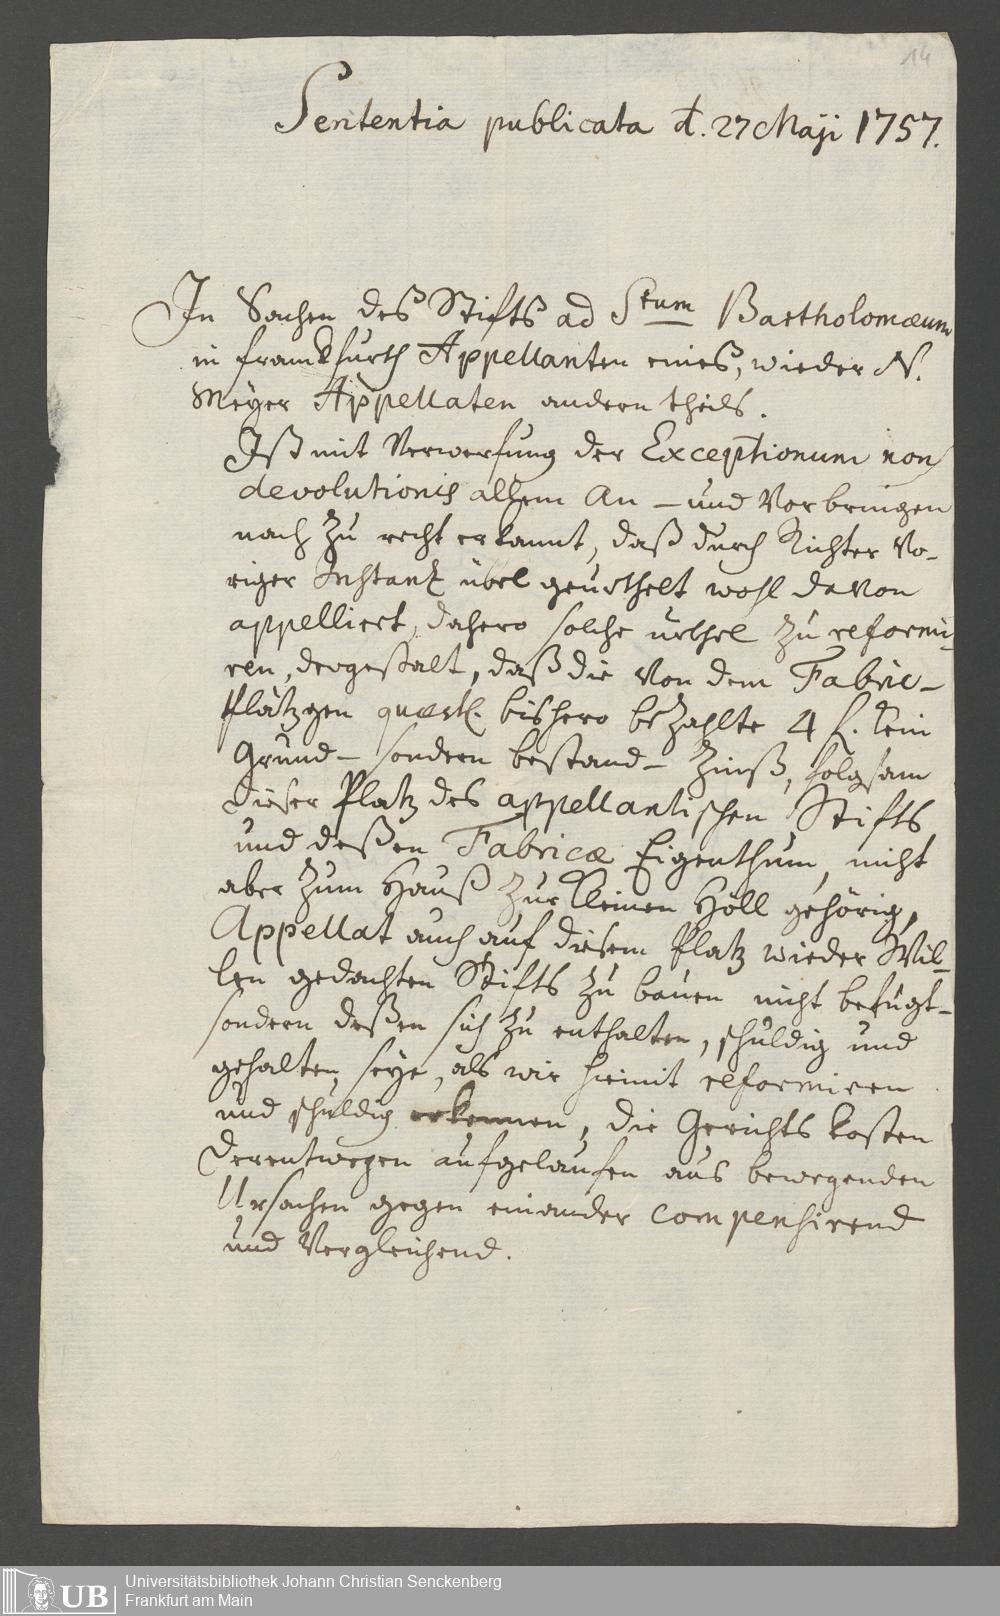 14
Sententia publicata d. 27 Maji 1757.
In Sachen des Stifts ad Stum Bartholomæum
in franckfurth Appellanten eines, wieder N.
Meÿer Appellaten andern theils.
Ist mit Verwerfung der Exceptionum non
devolutionis allem An- und Vorbringen
nach zu recht erkannt, daß durch Richter Vo-
riger Instantz übel geurthelt wohl davon
appelliert, dahero solche urthel zu reformi-
ren, dergestalt, daß die von dem Fabric-
Plätzgen quæst. bishero bezahlte 4 f. kein
Grund- sondern bestand- Zinß, folgsam
dieser Platz des appellantischen Stifts
und deßen Fabricæ Eigenthum, nicht
aber zum Hauß zur kleinen Höll gehörig,
Appellat auch auf diesem Platz wieder Wil-
len gedachten Stifts zu bauen nicht befugt-
sondern deßen sich zu enthalten, schuldig und
gehalten seye, als wir hiemit reformiren
und schuldig erkennen, die Gerichts kosten
derentwegen aufgelaufen aus bewegenden
Ursachen gegen einander compensirend
und Vergleichend.
UB
Universitätsbibliothek Johann Christian Senckenberg
Frankfurt am Main